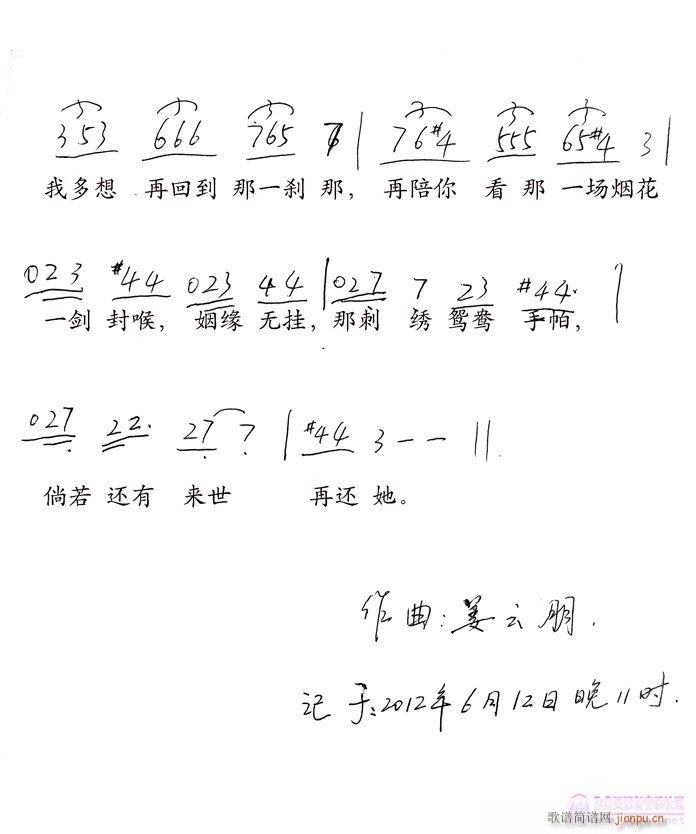 353 666 765 7 | 76#4 555 65#4 3 |
我多想 再回到 那一刹 那，再陪你 看那 一场烟花
023 #44 023 44 | 027 7 23 #44. |
一剑 封喉，姻缘 无挂，那刺 绣 鸳鸯 手帕，
027 22. 27 7 | #44 3 - - ||
倘若 还有 来世 再还 她。
作曲：姜云朋.
记于：2012年6月12日晚11时.
歌谱简谱网 jianpu.cn